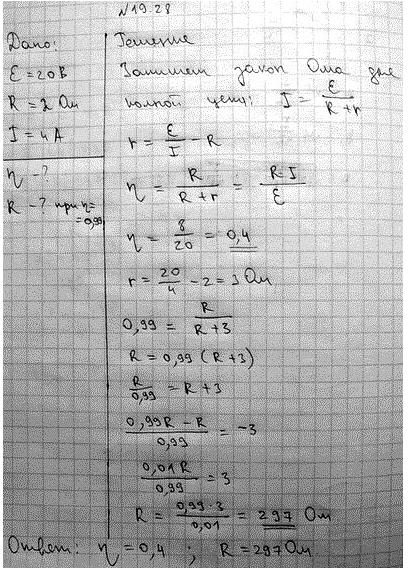 N19.28
Дано:
Ɛ = 20 В
R = 2 Ом
I = 4 А
η - ?
R - ? при η = 0,99
Решение
Запишем закон Ома для
полной цепи: I = Ɛ / (R + r)
r = Ɛ / I - R
η = R / (R + r) = R·I / Ɛ
η = 8 / 20 = 0,4
r = 20 / 4 - 2 = 3 Ом
0,99 = R / (R + 3)
R = 0,99 (R + 3)
R / 0,99 = R + 3
(0,99R - R) / 0,99 = -3
0,01R / 0,99 = 3
R = 0,99·3 / 0,01 = 297 Ом
Ответ: η = 0,4 ; R = 297 Ом